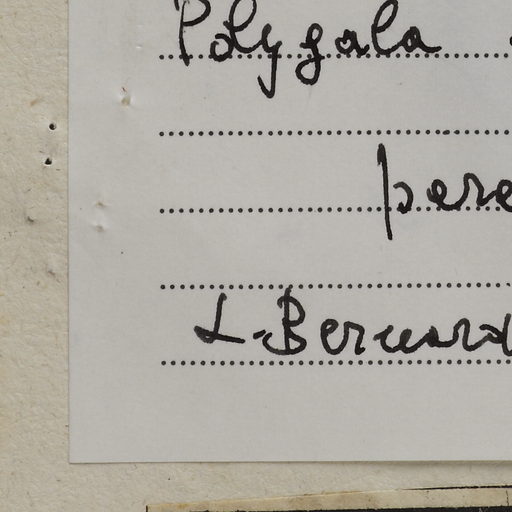 Polygala
pere
L. Bernard